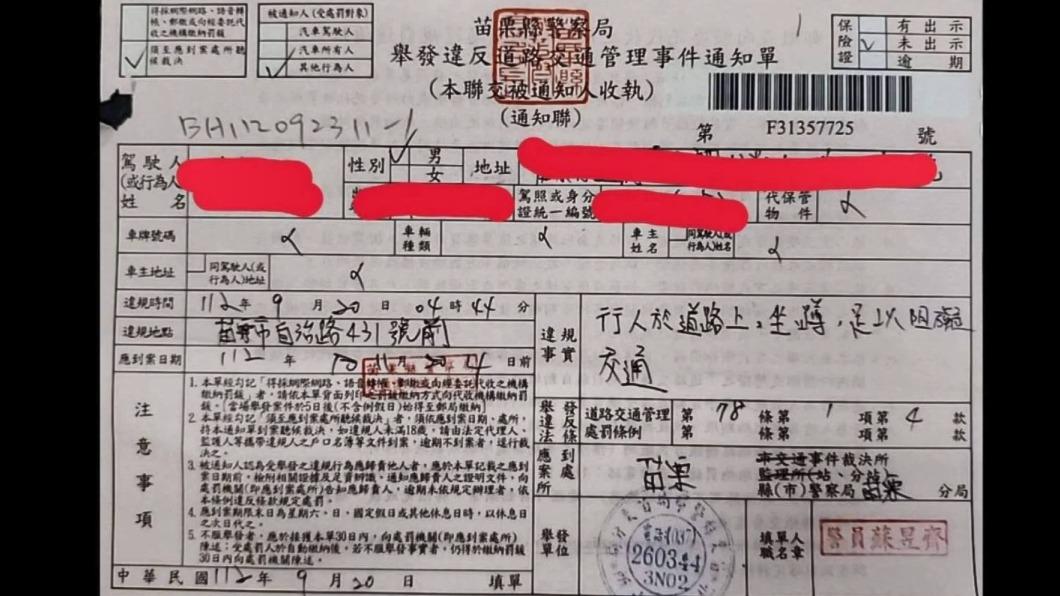 得採網際網路、語音轉
帳、郵繳或向經委託代
收之機構繳納罰鍰
須至應到案處所聽
候裁決
被通知人(受處罰對象)
汽車駕駛人
汽車所有人
其他行為人
苗栗縣警察局
舉發違反道路交通管理事件通知單
(本聯交被通知人收執)
(通知聯)
保險證
有出示
未出示
逾期
BH112092311-1
第 F31357725 號
駕駛人
(或行為人)
姓名
性別
男
女
地址
駕照或身分
證統一編號
代保管
物件
車牌號碼
車輛
種類
車主
姓名
同駕駛人(或
行為人)姓名
車主地址
同駕駛人(或
行為人)地址
違規時間 112年 9 月 20 日 04 時 44 分
違規地點 苗栗市自治路431號前
應到案日期 112 年 10 月 日前
違規事實
行人於道路上,坐蹲,足以阻礙
交通
舉發違反法條
道路交通管理
處罰條例
第 78 條第 1 項第 4 款
第 條第 項第 款
應到案處所
苗栗
市交通事件裁決所
監理所(站、分站)
縣(市)警察局 苗栗 分局
注意事項
1.本單經勾記「得採網際網路、語音轉帳、郵繳或向經委託代收之機構
繳納罰鍰」者,請依本單背面列印之罰鍰繳納方式向代收機構繳納罰
鍰。[當場舉發案件於5日後(不含例假日)始得至郵局繳納]
2.本單經勾記「須至應到案處所聽候裁決」者,須依應到案日期、處所,
持本通知單到案聽候裁決,如違規人未滿18歲,請由法定代理人、
監護人等攜帶違規人之戶口名簿等文件到案,逾期不到案者,逕行裁
決之。
3.被通知人認為受舉發之違規行為應歸責他人者,應於本單記載之應到
案日期前,檢附相關證據及足資辨識、通知應歸責人之證明文件,向
處罰機關(即應到案處所)告知應歸責人,逾期未依規定辦理者,依
本條例違反條款規定處罰。
4.應到案期限末日為星期六、日、國定假日或其他休息日時,以休息日
之次日代之。
5.不服舉發者,應於接獲本單30日內,向處罰機關(即應到案處所)
陳述;受處罰人於自動繳納後,若不服舉發事實者,仍得於繳納罰鍰
30日內向處罰機關陳述。
舉發單位
260344
3N02
填單人
職名章
警員蘇昱齊
中華民國112年 9 月 20 日 填單